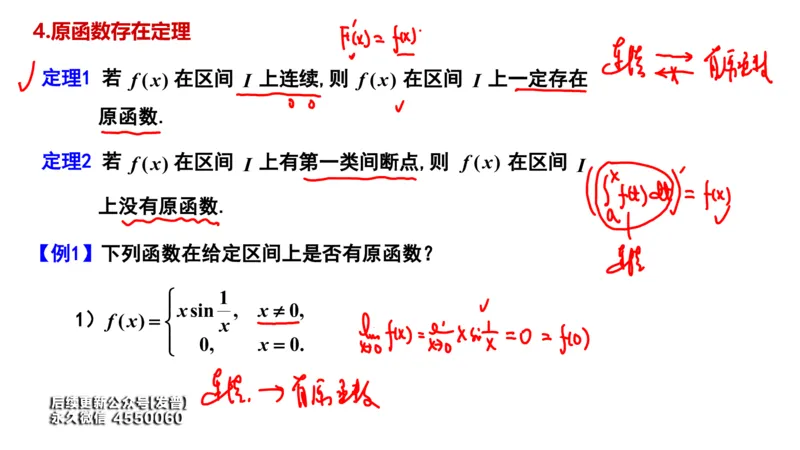 4.原函数存在定理
F′(x) = f(x).
定理1 若 f(x) 在区间 I 上连续,则 f(x) 在区间 I 上一定存在
原函数.
连续 ⇄ 有原函数
定理2 若 f(x) 在区间 I 上有第一类间断点,则 f(x) 在区间 I
上没有原函数.
(∫ₐˣ f(t)dt)′ = f(x)
连续
【例1】下列函数在给定区间上是否有原函数？
1) f(x) = { x sin 1/x, x ≠ 0,
0, x = 0.
lim x→0 f(x) = lim x→0 x sin 1/x = 0 = f(0)
连续. → 有原函数
后续更新公众号[发普]
永久微信 4550060